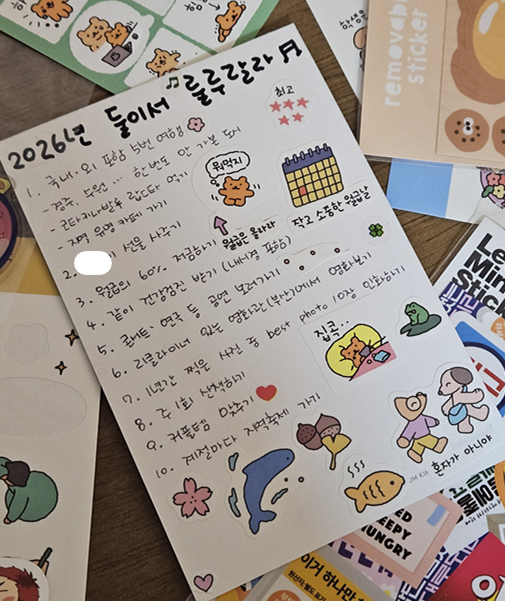 힘
학생은
removable
sticker
2026년 둘이서 룰루랄라
최고
1. 국내·외 포함 5번 여행
- 경주, 수원 ... 한번도 안 가본 도시
- 코타키나발루 랍스타 먹기
- 지역 유명 카페 가기
뭐먹지
2. 선물 사주기
3. 월급의 60% 저금하기
월급은 올라라
작고 소중한 월급날
4. 같이 건강검진 받기 (내시경 포함)
5. 콘서트·연극 등 공연 보러가기
6. 리클라이너 있는 영화관(부산)에서 영화보기
7. 1년간 찍은 사진 중 best photo 10장 인화하기
8. 주 1회 산책하기
집콕...
9. 커플템 맞추기
10. 계절마다 지역축제 가기
혼자가 아니야
SLEEPY
HUNGRY
이거 하나만